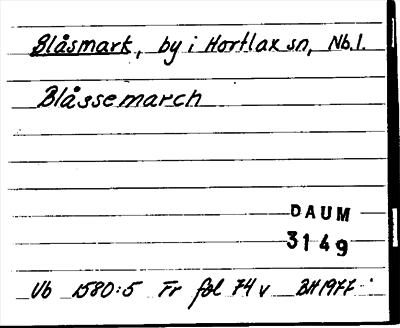 Blåsmark, by i Hortlax sn, Nb.l.
Blåssemarch
DAUM
3149
Vb 1580:5 Fr fol 74 v BH 1977